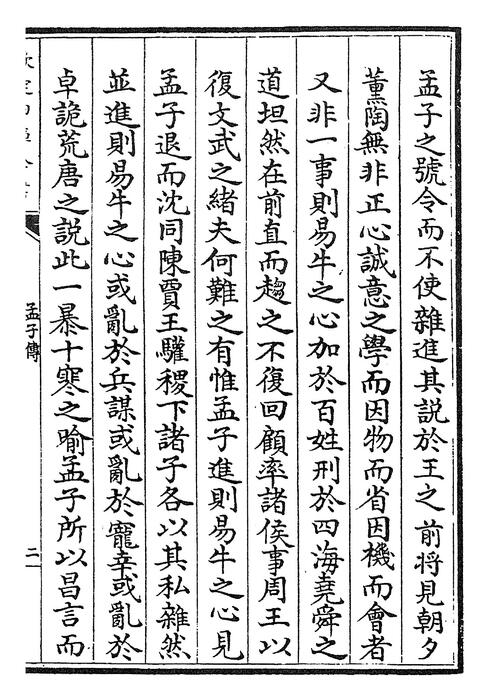 孟子之號令而不使雜進其説於王之前將見朝夕
薰陶無非正心誠意之學而因物而省因機而會者
又非一事則易牛之心加於百姓刑於四海堯舜之
道坦然在前直而趨之不復回顧率諸侯事周王以
復文武之緒夫何難之有惟孟子進則易牛之心見
孟子退而沈同陳賈王驩稷下諸子各以其私雜然
並進則易牛之心或亂於兵謀或亂於寵幸或亂於
卓詭荒唐之説此一暴十寒之喻孟子所以昌言而
孟子傳
二